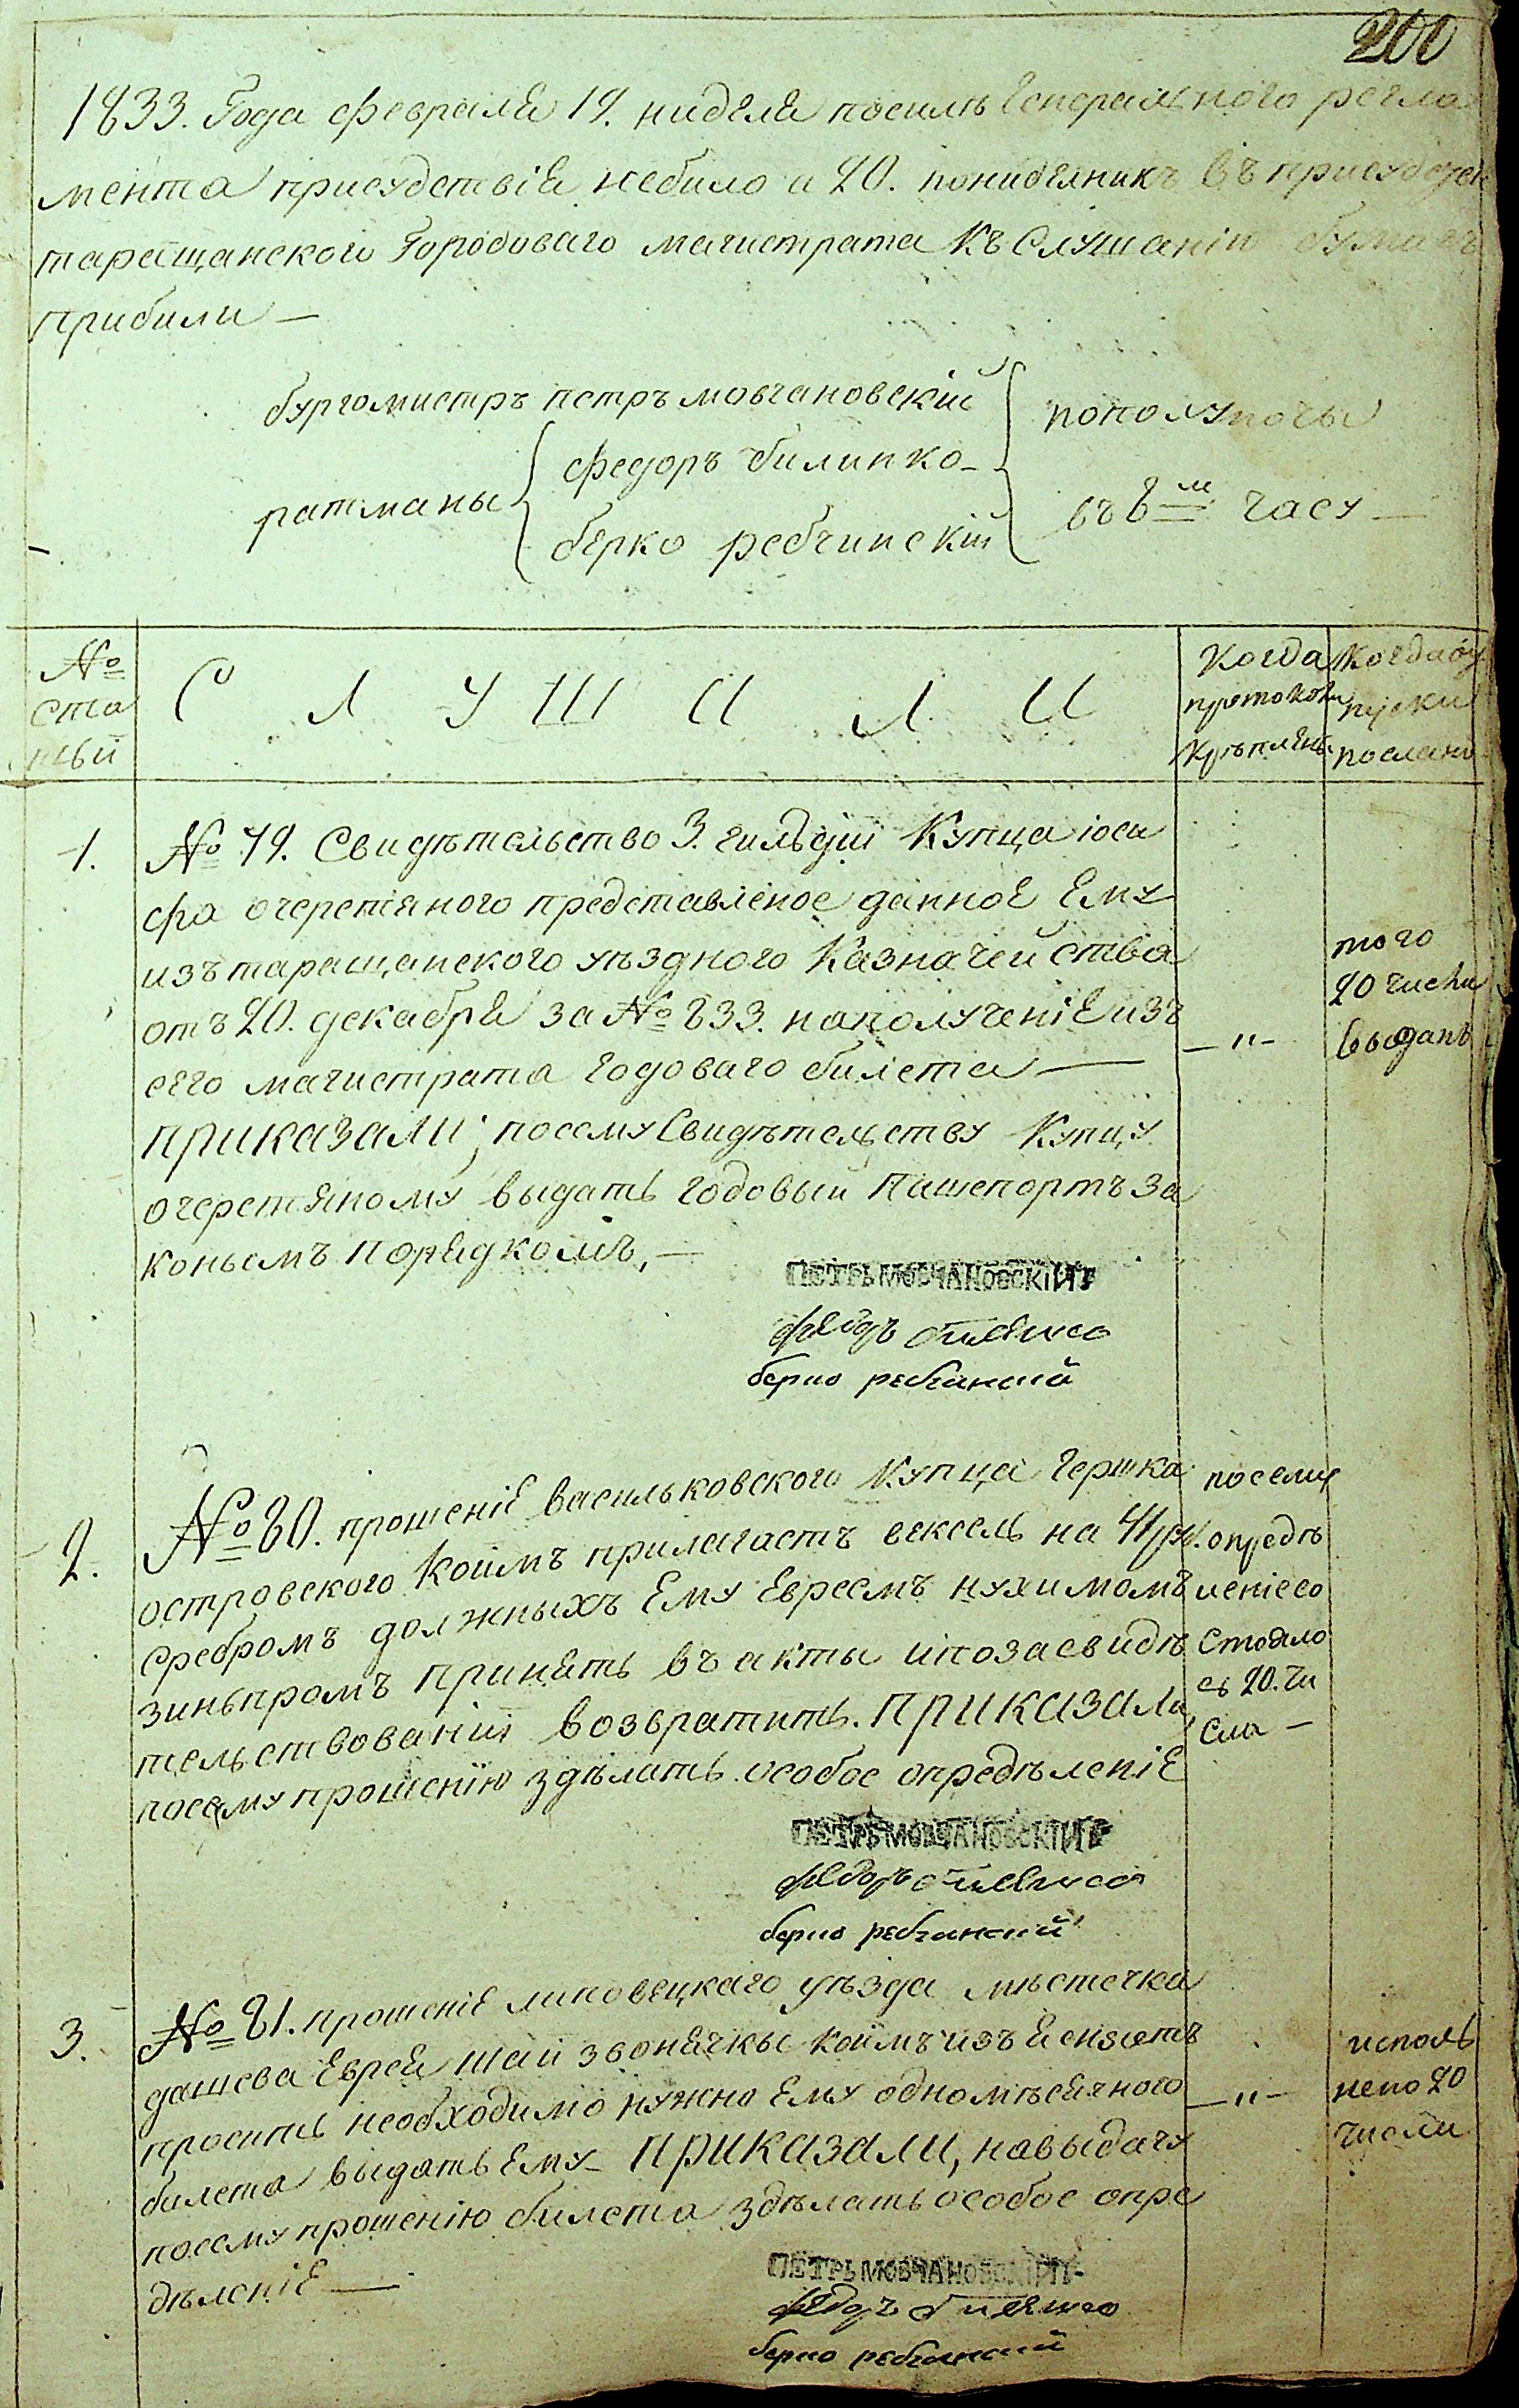 200
1833. Года февраля 19. ниделя посилѣ Генеральнаго регла
мента присудствія небило и 20. понидѣлникъ въ присудствіи
таращанского Городоваго магистрата Къ Слушанію бумагъ
прибили —
бургомистръ петръ мовчановскій
ратманы
федоръ билинко
берко ребчинскій
пополуночы
въ 8м часу —
№
ста
тьи
С Л У Ш И Л И
Когда
протокол
крѣплены
Когда от
пуски
послано
1.
№ 79. Свидѣтельство 3. гильдіи Купца іоси
фа очеретяного представленое данное Ему
изъ таращанского уѣздного Казначейства
отъ 20. декабря за № 833. наполученіе изъ
сего магистрата годоваго билета —
приказали; посему Свидѣтельству Купцу
очеретяному выдать годовый пашепортъ за
конымъ порядкомъ, —
— " —
того
20 числа
выданъ
ПЕТРЬ МОВЧАНОВСКІЙ
федоръ билинко
берко ребчинскій
2.
№ 80. прошеніе васильковского Купца Гершка
островского Коимъ прилагаетъ вексель на 41 ру.
сребромъ должныхъ Ему Евреемъ нухимомъ
зиньпромъ принять въ акты ипозасвидѣ
тельствованіи возвратить. приказали,
посему прошенію здѣлать особое опредѣленіе
посему
опредѣ
леніе со
стояло
сь 20. чи
сла —
ПЕТРЬ МОВЧАНОВСКІЙ
федоръ билинко
берко ребчинскій
3.
№ 81. прошеніе липовецкаго уѣзда мѣстечка
дашева Еврея шаи звонячкы коимъ изъясняетъ
просить необходимо нужно Ему одномѣсячного
билета выдать Ему — приказали, навыдачу
посему прошенію билета здѣлать особое опре
дѣленіе —
— " —
исполь
нено 20
числа
ПЕТРЬ МОВЧАНОВСКІЙ
федоръ билинко
берко ребчинскій